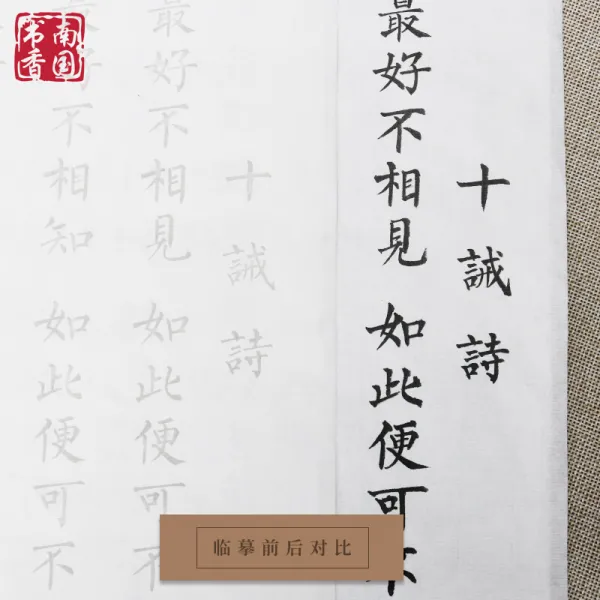 南国
书香
十誡詩
最好不相見 如此便可不
十誡詩
最好不相見 如此便可不
最好不相知 如此便可不
临摹前后对比